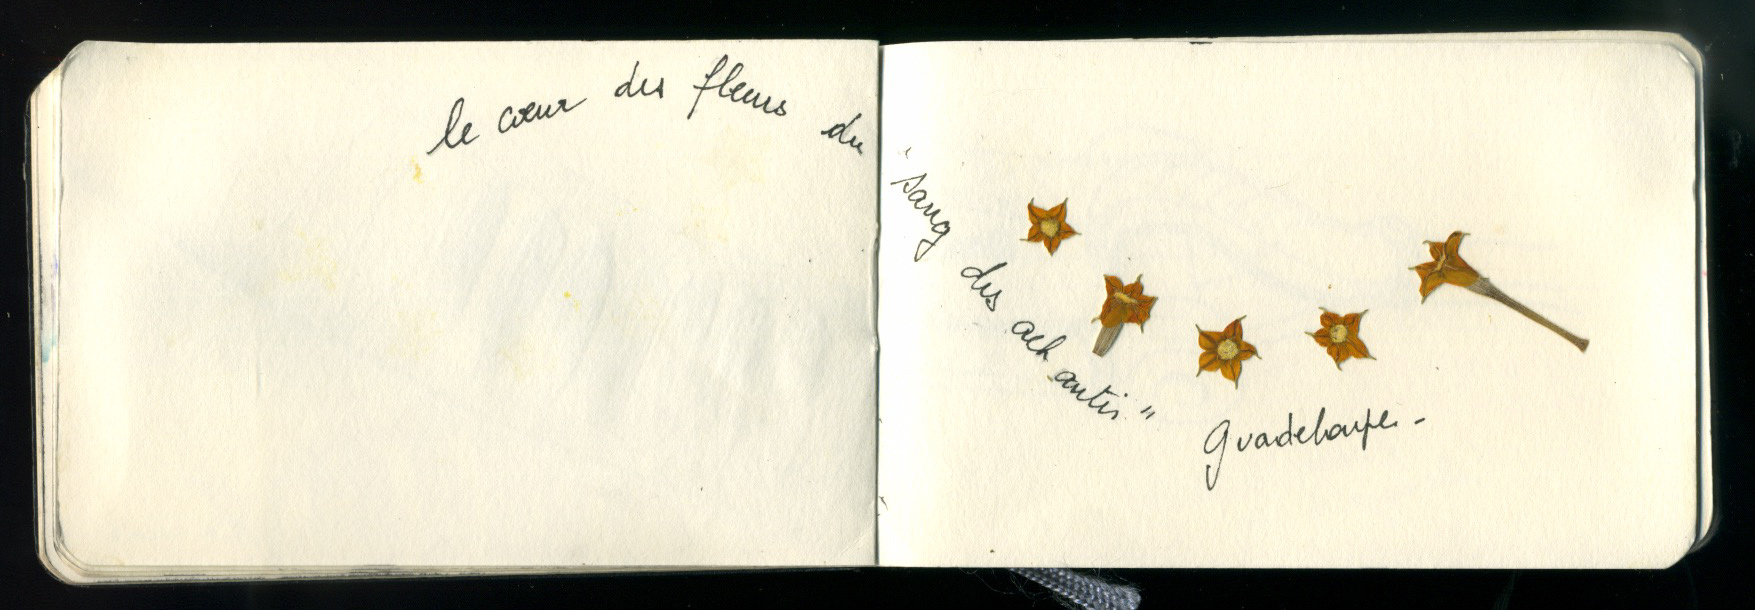 le cœur des fleurs du
"sang des ach antis"
Guadeloupe -